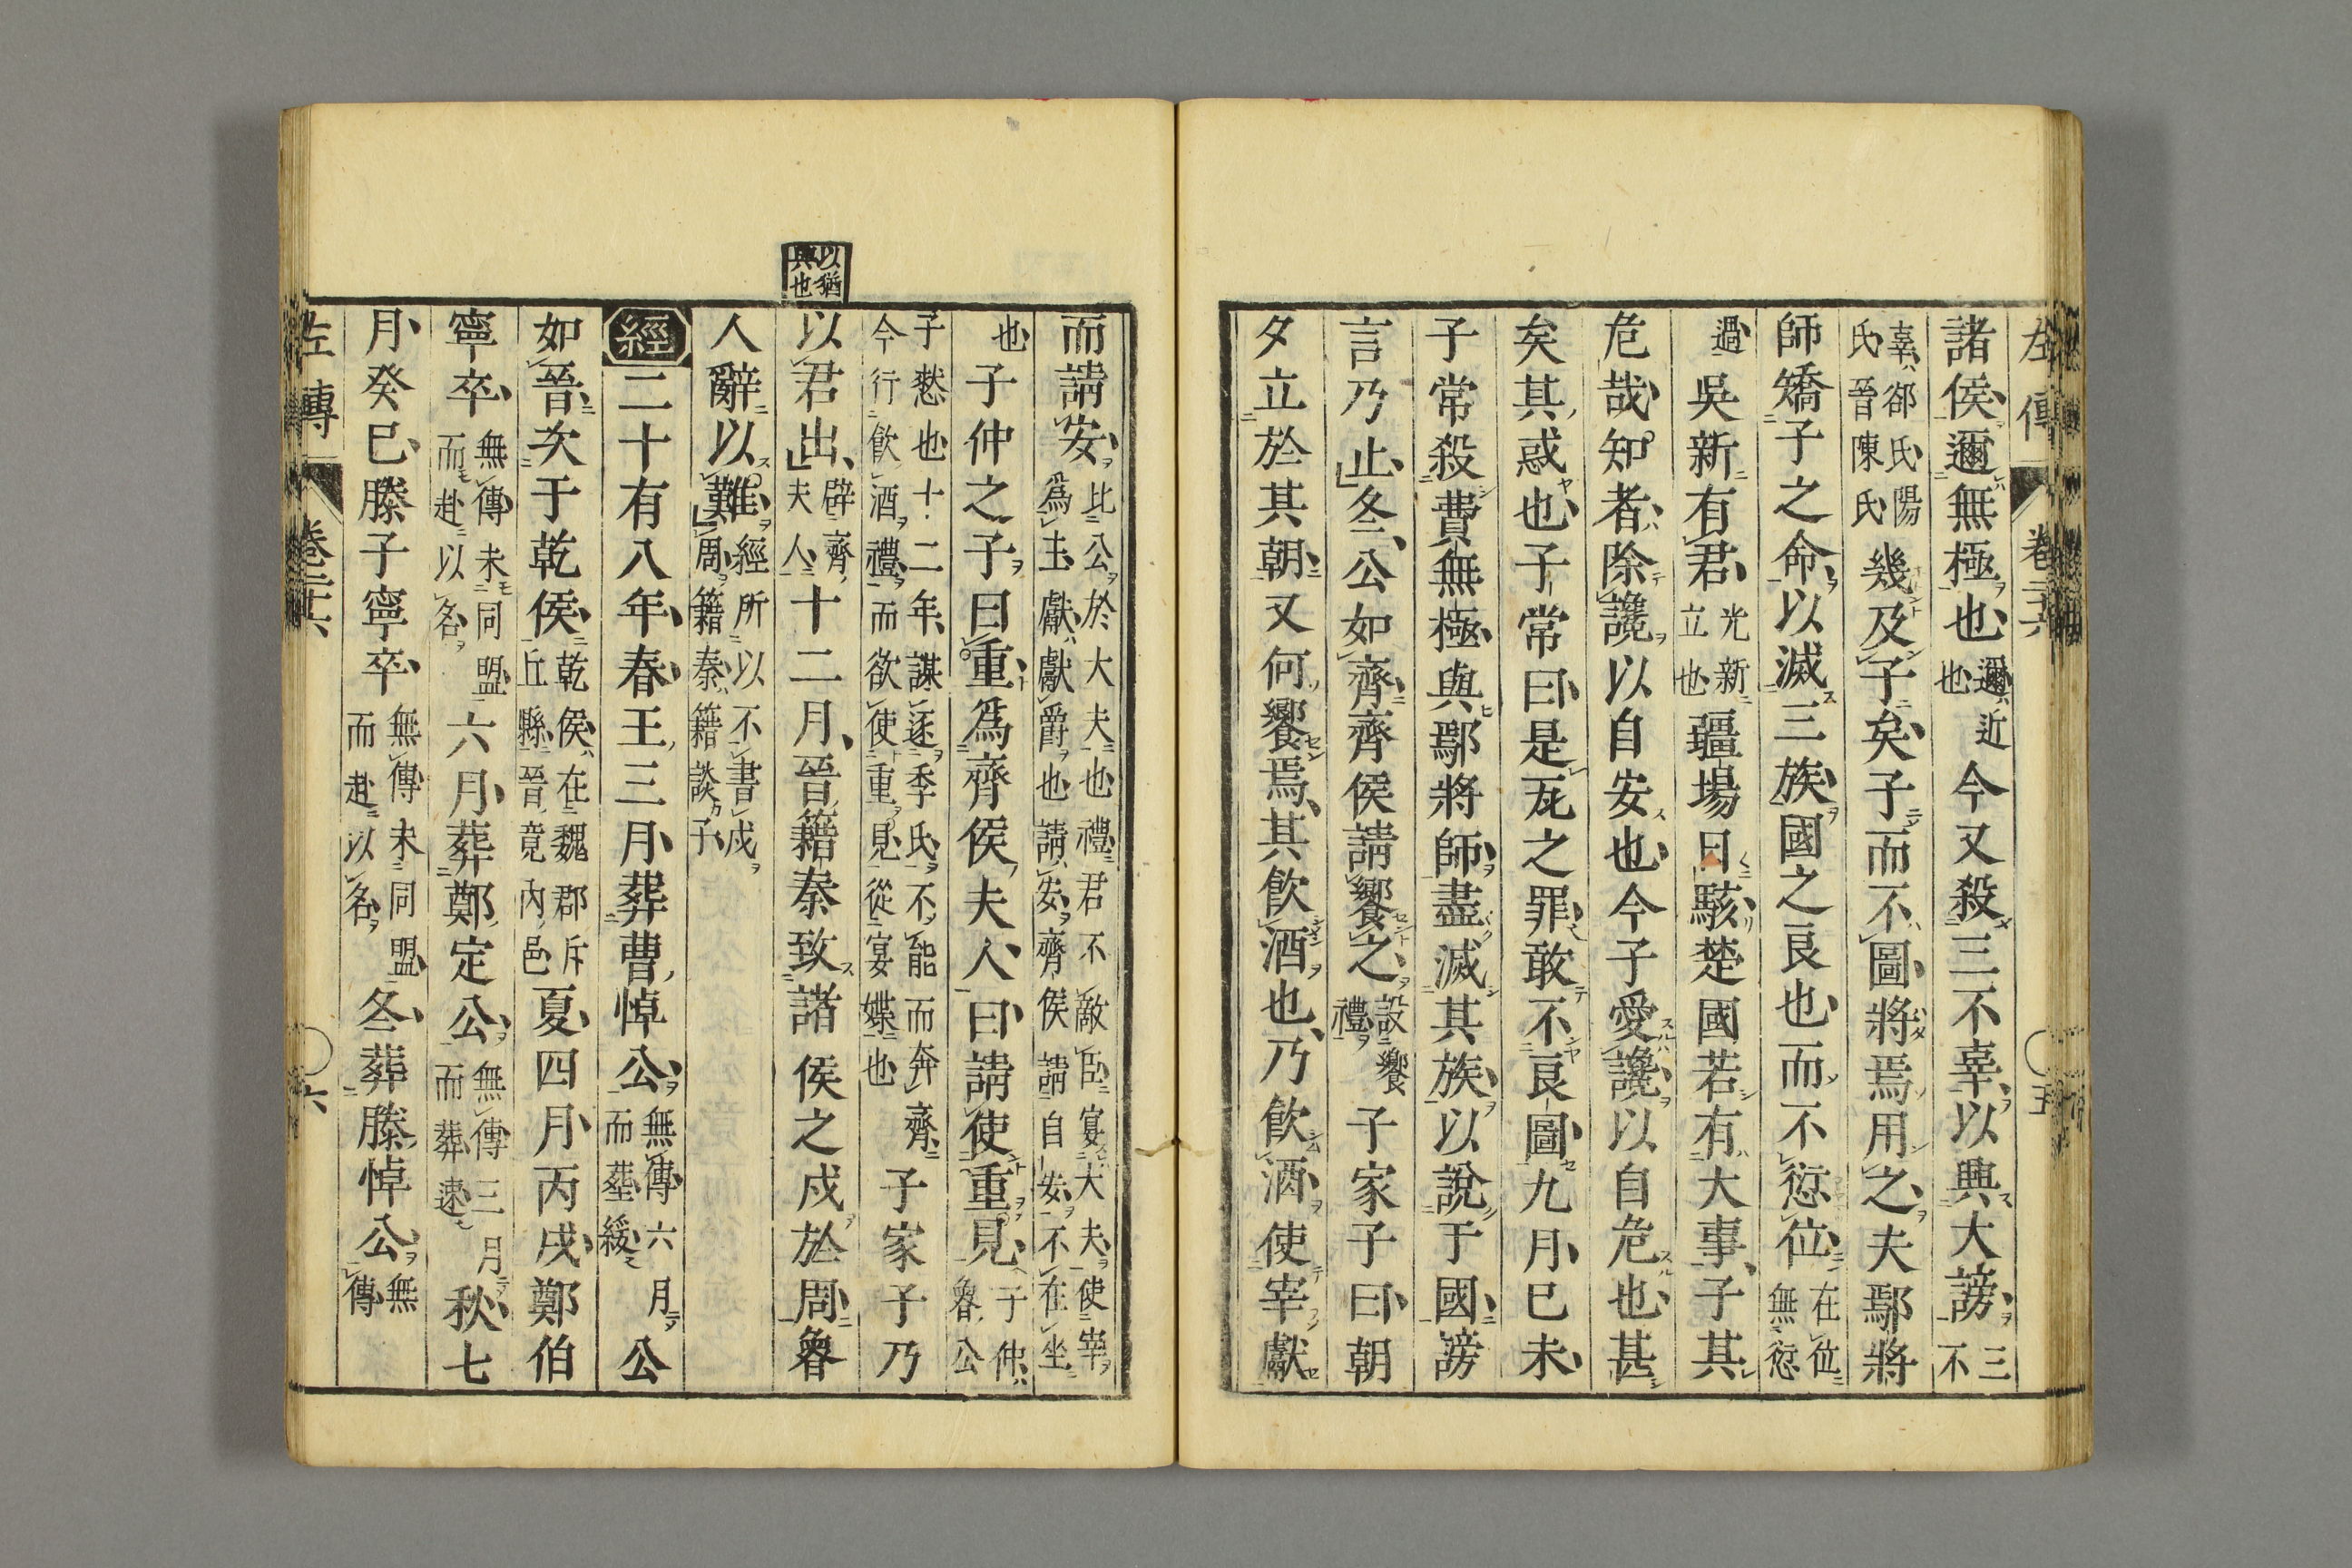 左傳 卷二十六 五
諸侯邇無極也邇近也今又殺三不辜以興大謗三不
辜郤氏陽氏晉陳氏幾及子矣子而不圖將焉用之夫鄢將
師矯子之命以滅三族國之良也而不愆位在位無愆
過吳新有君光新立也疆場日駭楚國若有大事子其
危哉知者除讒以自安也今子愛讒以自危也甚
矣其惑也子常曰是瓦之罪敢不良圖九月已未
子常殺費無極與鄢將師盡滅其族以說于國謗
言乃止冬公如齊齊侯請饗之設饗禮子家子曰朝
夕立於其朝又何饗焉其飲酒也乃飲酒使宰獻
而請安比公於大夫也禮君不敵臣宴大夫使宰為主獻獻爵也請安齊侯請自安不在坐
也子仲之子曰重爲齊侯夫人曰請使重見子仲魯公
子憖也十二年謀逐季氏不能而奔齊今行飲酒禮而欲使重見從宴媟也子家子乃
以君出辟齊夫人十二月晉籍秦致諸侯之戍於周魯
以猶與也
人辭以難經所以不書戍周籍秦籍談子
經二十有八年春王三月葬曹悼公無傳六月而葬緩公
如晉次于乾侯乾侯在魏郡斥丘縣晉竟內邑夏四月丙戌鄭伯
寧卒無傳未同盟而赴以名六月葬鄭定公無傳三月而葬速秋七
月癸巳滕子寧卒無傳未同盟而赴以名冬葬滕悼公無傳
左傳 卷二十六 六